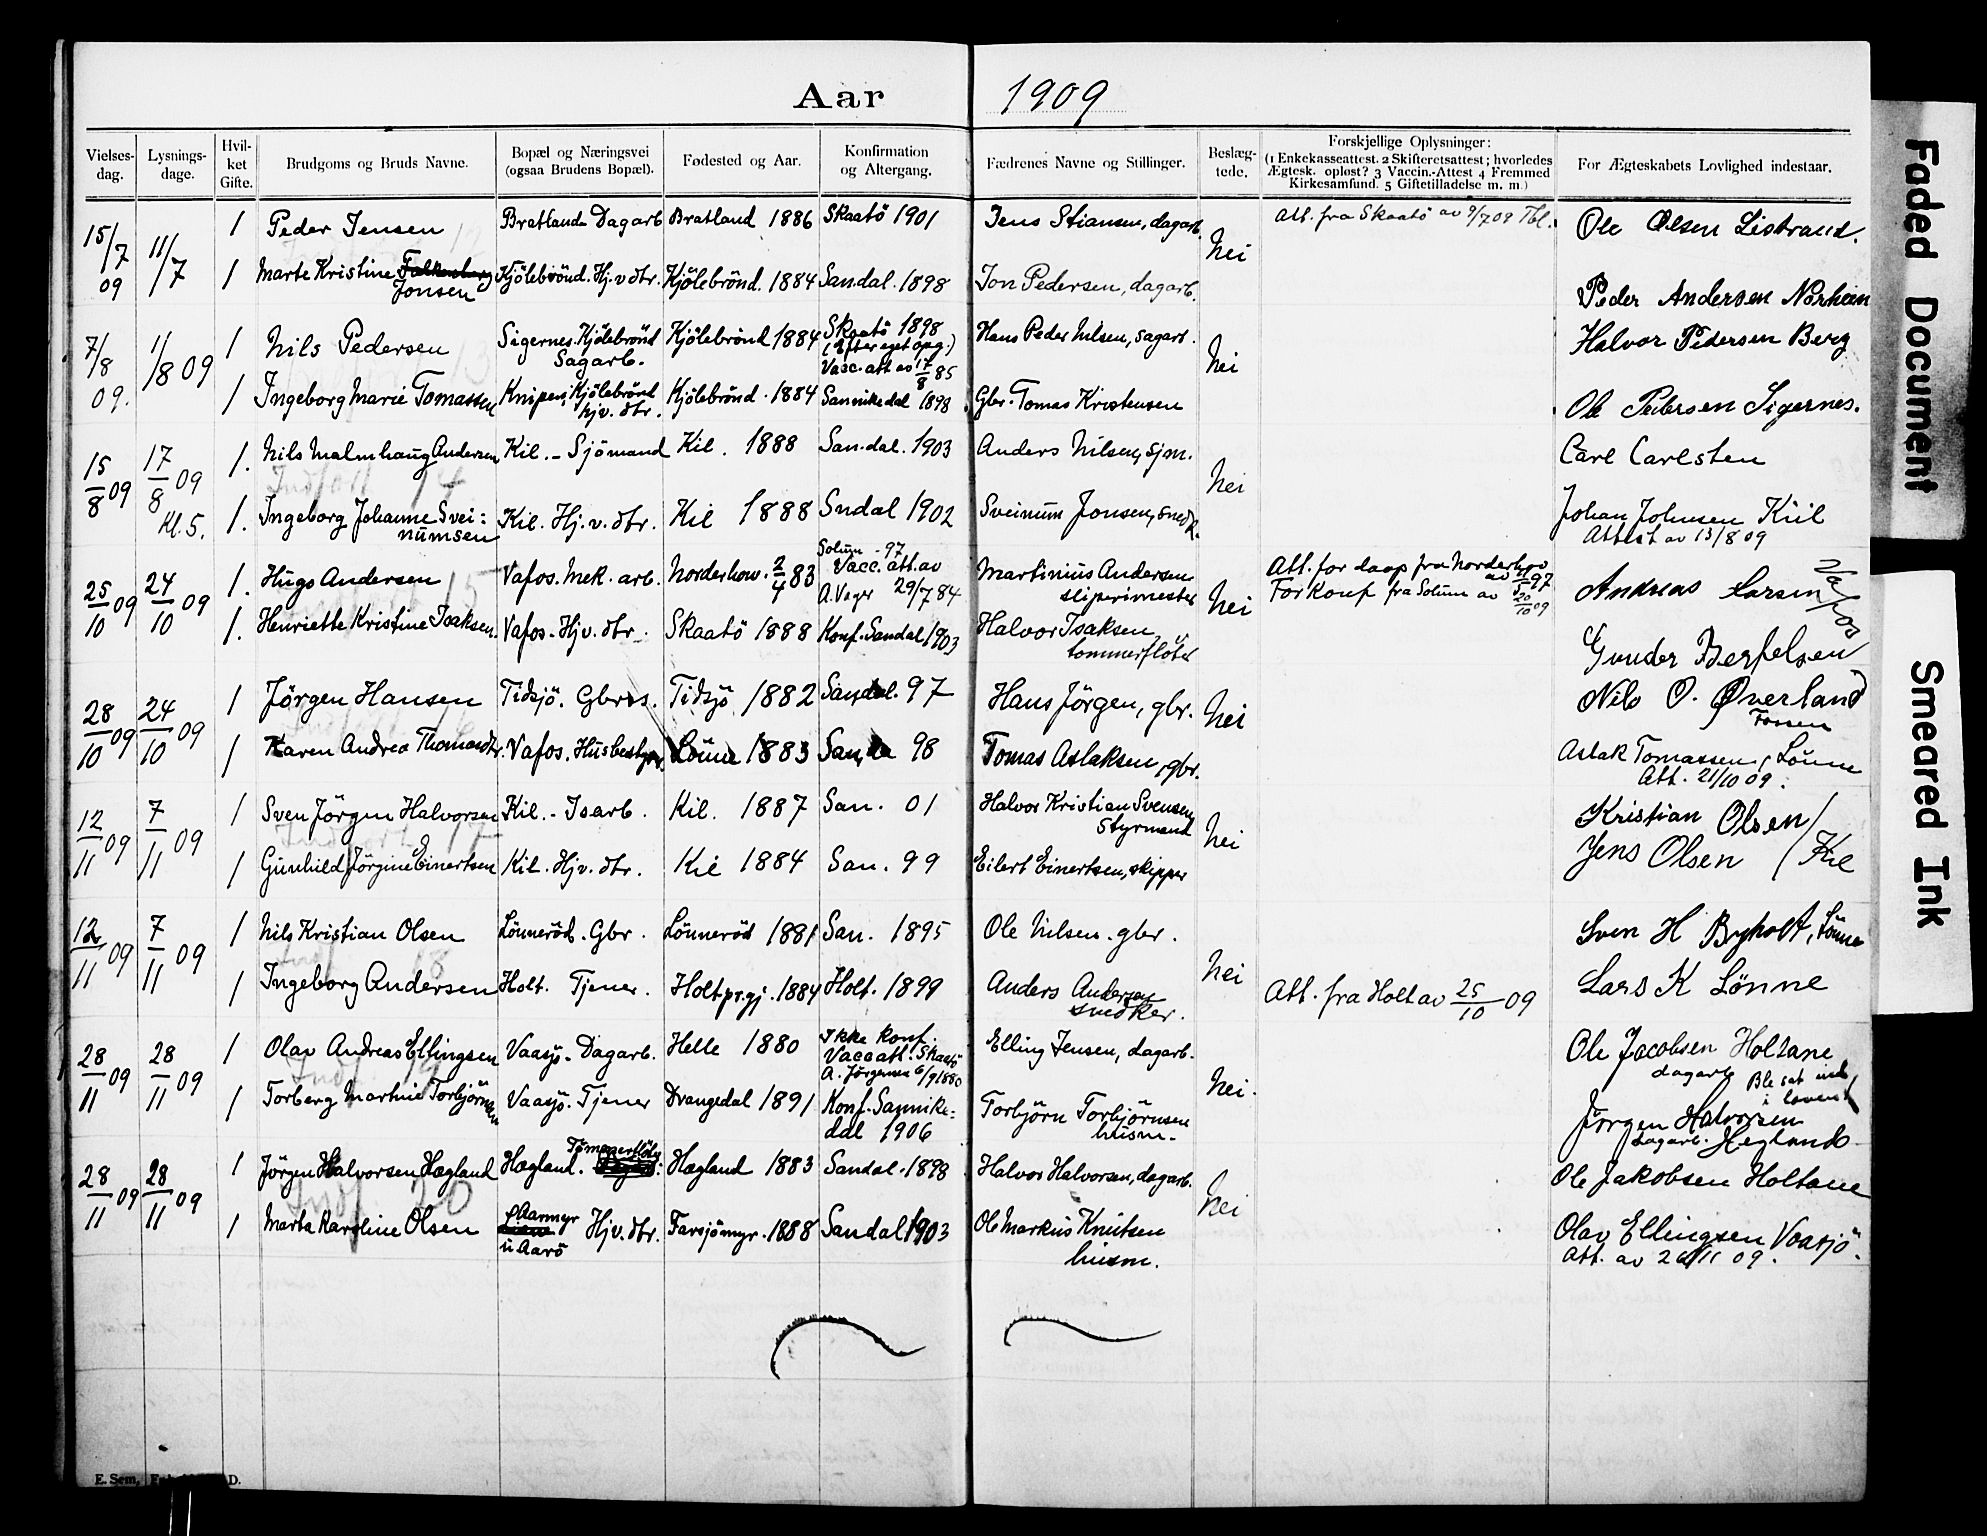 Aar 1909
Vielses-dag. Lysnings-dage. Hvil-ket Gifte. Brudgoms og Bruds Navne. Bopæl og Næringsvei (ogsaa Brudens Bopæl). Fødested og Aar. Konfirmation og Altergang. Fædrenes Navne og Stillinger. Beslæg-tede. Forskjellige Oplysninger: (1 Enkekasseattest. 2 Skifteretsattest; hvorledes Ægtesk. opløst? 3 Vaccin.-Attest 4 Fremmed Kirkesamfund. 5 Giftetilladelse m. m.) For Ægteskabets Lovlighed indestaar.
15/7 09 11/7 1 Peder Jensen Bratland Dagarb Bratland 1886 Skaatö 1901 Jens Stiansen, dagarb. Nei Att. fra Skaatö av 9/7 09 Ole Olsen Listrand.
1 Marte Kristine Jonsen Kjölebrönd. Hj. v dtr. Kjölebrönd. 1884 Sandal. 1898 Jon Pedersen, dagarb. Peder Andersen Norheim
7/8 09. 1/8 09 1 Nils Pedersen Sigernes. Kjölebrönd Sagarb. Kjölebrönd 1884 Skaatö 1898 (Efter eget opg.) Vacc. att av 17/8 85 Hans Peder Nilsen, sagarb. Nei Halvor Pedersen Berg
1 Ingeborg Marie Tomassen Knipen, Kjölebrönd hjv. dtr. Kjölebrönd. 1884 Sannikedal 1898 Gbr. Tomas Kristensen Ole Pedersen Sigernes.
15/8 09 17/8 09 Kl. 5. 1. Nils Malmhaug Andersen Kil. - Sjömand Kil. 1888 San.dal. 1903 Anders Nilsen, sjm. Nei Carl Carlsten
1. Ingeborg Johanne Svei: numsen Kil. Hj. v. dtr. Kil 1888 Sndal 1902 Sveinum Jonsen, snedk. Johan Johnsen Kiil
Attest av 13/8 09
25/10 09 24/10 09 1. Hugo Andersen Vafos. Mek. arb. Norderhov. 2/4 83 Solum - 97 Vacc. att. av 29/7 84 Martinius Andersen sliperimester Nei Att. for daap fra Norderhov
For konf fra Solum av 20/10 09 Andreas Larsen Vafos
1. Henriette Kristine Isaksen. Vafos. Hjv. dtr. Skaatö 1888 Konf. Sandal 1903 Halvor Isaksen, tommerflöter Gunder Bertelsen
28/10 09 24/10 09 1 Jörgen Hansen Tidsjö. Gbrs. Tidsjö 1882 Sandal. 97 Hans Jörgen, gbr. Nei Nils O. Øverland Fossen
1 Karen Andrea Thomasdtr. Vafos. Husbestyr. Lönne 1883 98 Tomas Aslaksen, gbr. Aslak Tomassen, Lönne
Att. 21/10 09.
12/11 09 7/11 09 1 Sven Jörgen Halvorsen Kil. - Isarb. Kil. 1887 San. 01 Halvor Kristian Svensen Styrmand Nei Kristian Olsen
1 Gunhild Jörgine Einertsen Kil. Hjv. dtr. Kil 1884 San. 99 Eilert Einertsen, skipper Jens Olsen Kil
12/11 09 7/11 09 1 Nils Kristian Olsen Lönneröd. Gbr. Lönneröd 1881 San. 1895 Ole Nilsen. gbr. Nei Sven H Bryholt, Lönne
1 Ingeborg Andersen Holt. Tjener. Holt pr.gj. 1884 Holt. 1899 Anders Andersen snedker. Att. fra Holt av 25/10 09 Lars K Lönne
28/11 09 28/11 09 1 Olav Andreas Ellingsen Vaasjö. Dagarb. Helle 1880 Ikke konf. Vacc att. Skaatö A. Jörgensen 6/9 1880 Elling Jensen, dagarb. Nei. Ole Jacobsen Holtane
dagarb Ble sat ind i loven
1 Torberg Martine Torbjörnsen Vaasjö. Tjener Drangedal 1891 Konf. Sannike= dal 1906 Torbjörn Torbjörnsen husm. Jörgen Halvorsen
dagarb. Hegland
28/11 09 28/11 09 1 Jörgen Halvorsen Hægland Hægland. Tömmerflöder Hægland 1883 Sandal. 1898 Halvor Halvorsen, dagarb. Nei Ole Jakobsen Holtane
1 Marta Karoline Olsen Aarmyr u Aarö Hjv. dtr. Farsjömyr. 1888 Sandal 1903 Ole Markus Knutsen husm. Olav Ellingsen Vaasjö.
Att. av 26/11 09.
E. Sem,
D.
Faded Document
Smeared Ink